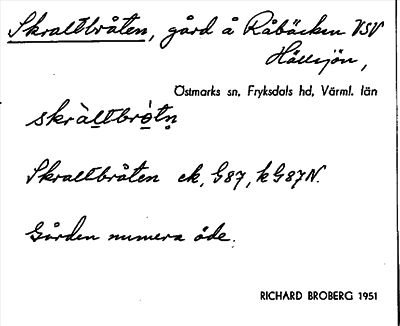 Skraltbråten, gård å Råbäcken VSV
Hällsjön,
Östmarks sn, Fryksdals hd, Värml. län
skràltbrò̱tṇ
Skraltbråten ek, G87, kG87N.
Gården numera öde.
RICHARD BROBERG 1951